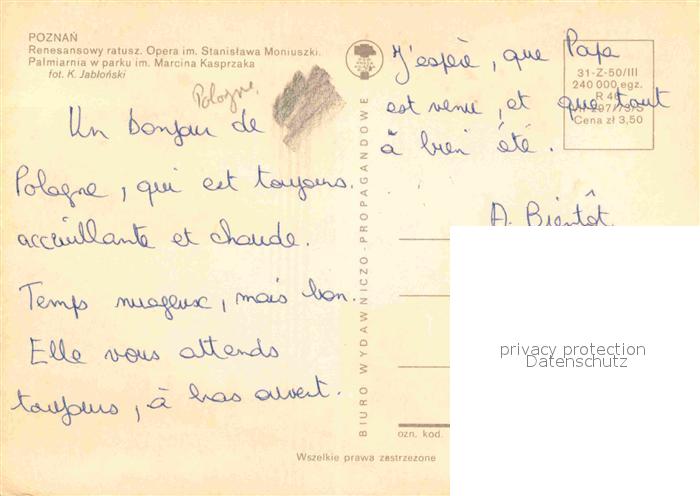 POZNAŃ
Renesansowy ratusz. Opera im. Stanisława Moniuszki.
Palmiarnia w parku im. Marcina Kasprzaka
fot. K. Jabłoński
Pologne.
Un bonjour de
Pologne, qui est toujours.
accuillante et chaude.
Temps nuageux, mais bon.
Elle vous attends
toujours, à bras ouvert.
BIURO WYDAWNICZO-PROPAGANDOWE
J'espère, que Papa
est venu, et que tout
à bien été.
A. Bientôt
31-Z-50/III
240 000 egz.
R 40
Cena zł 3,50
privacy protection
Datenschutz
ozn. kod.
Wszelkie prawa zastrzeżone